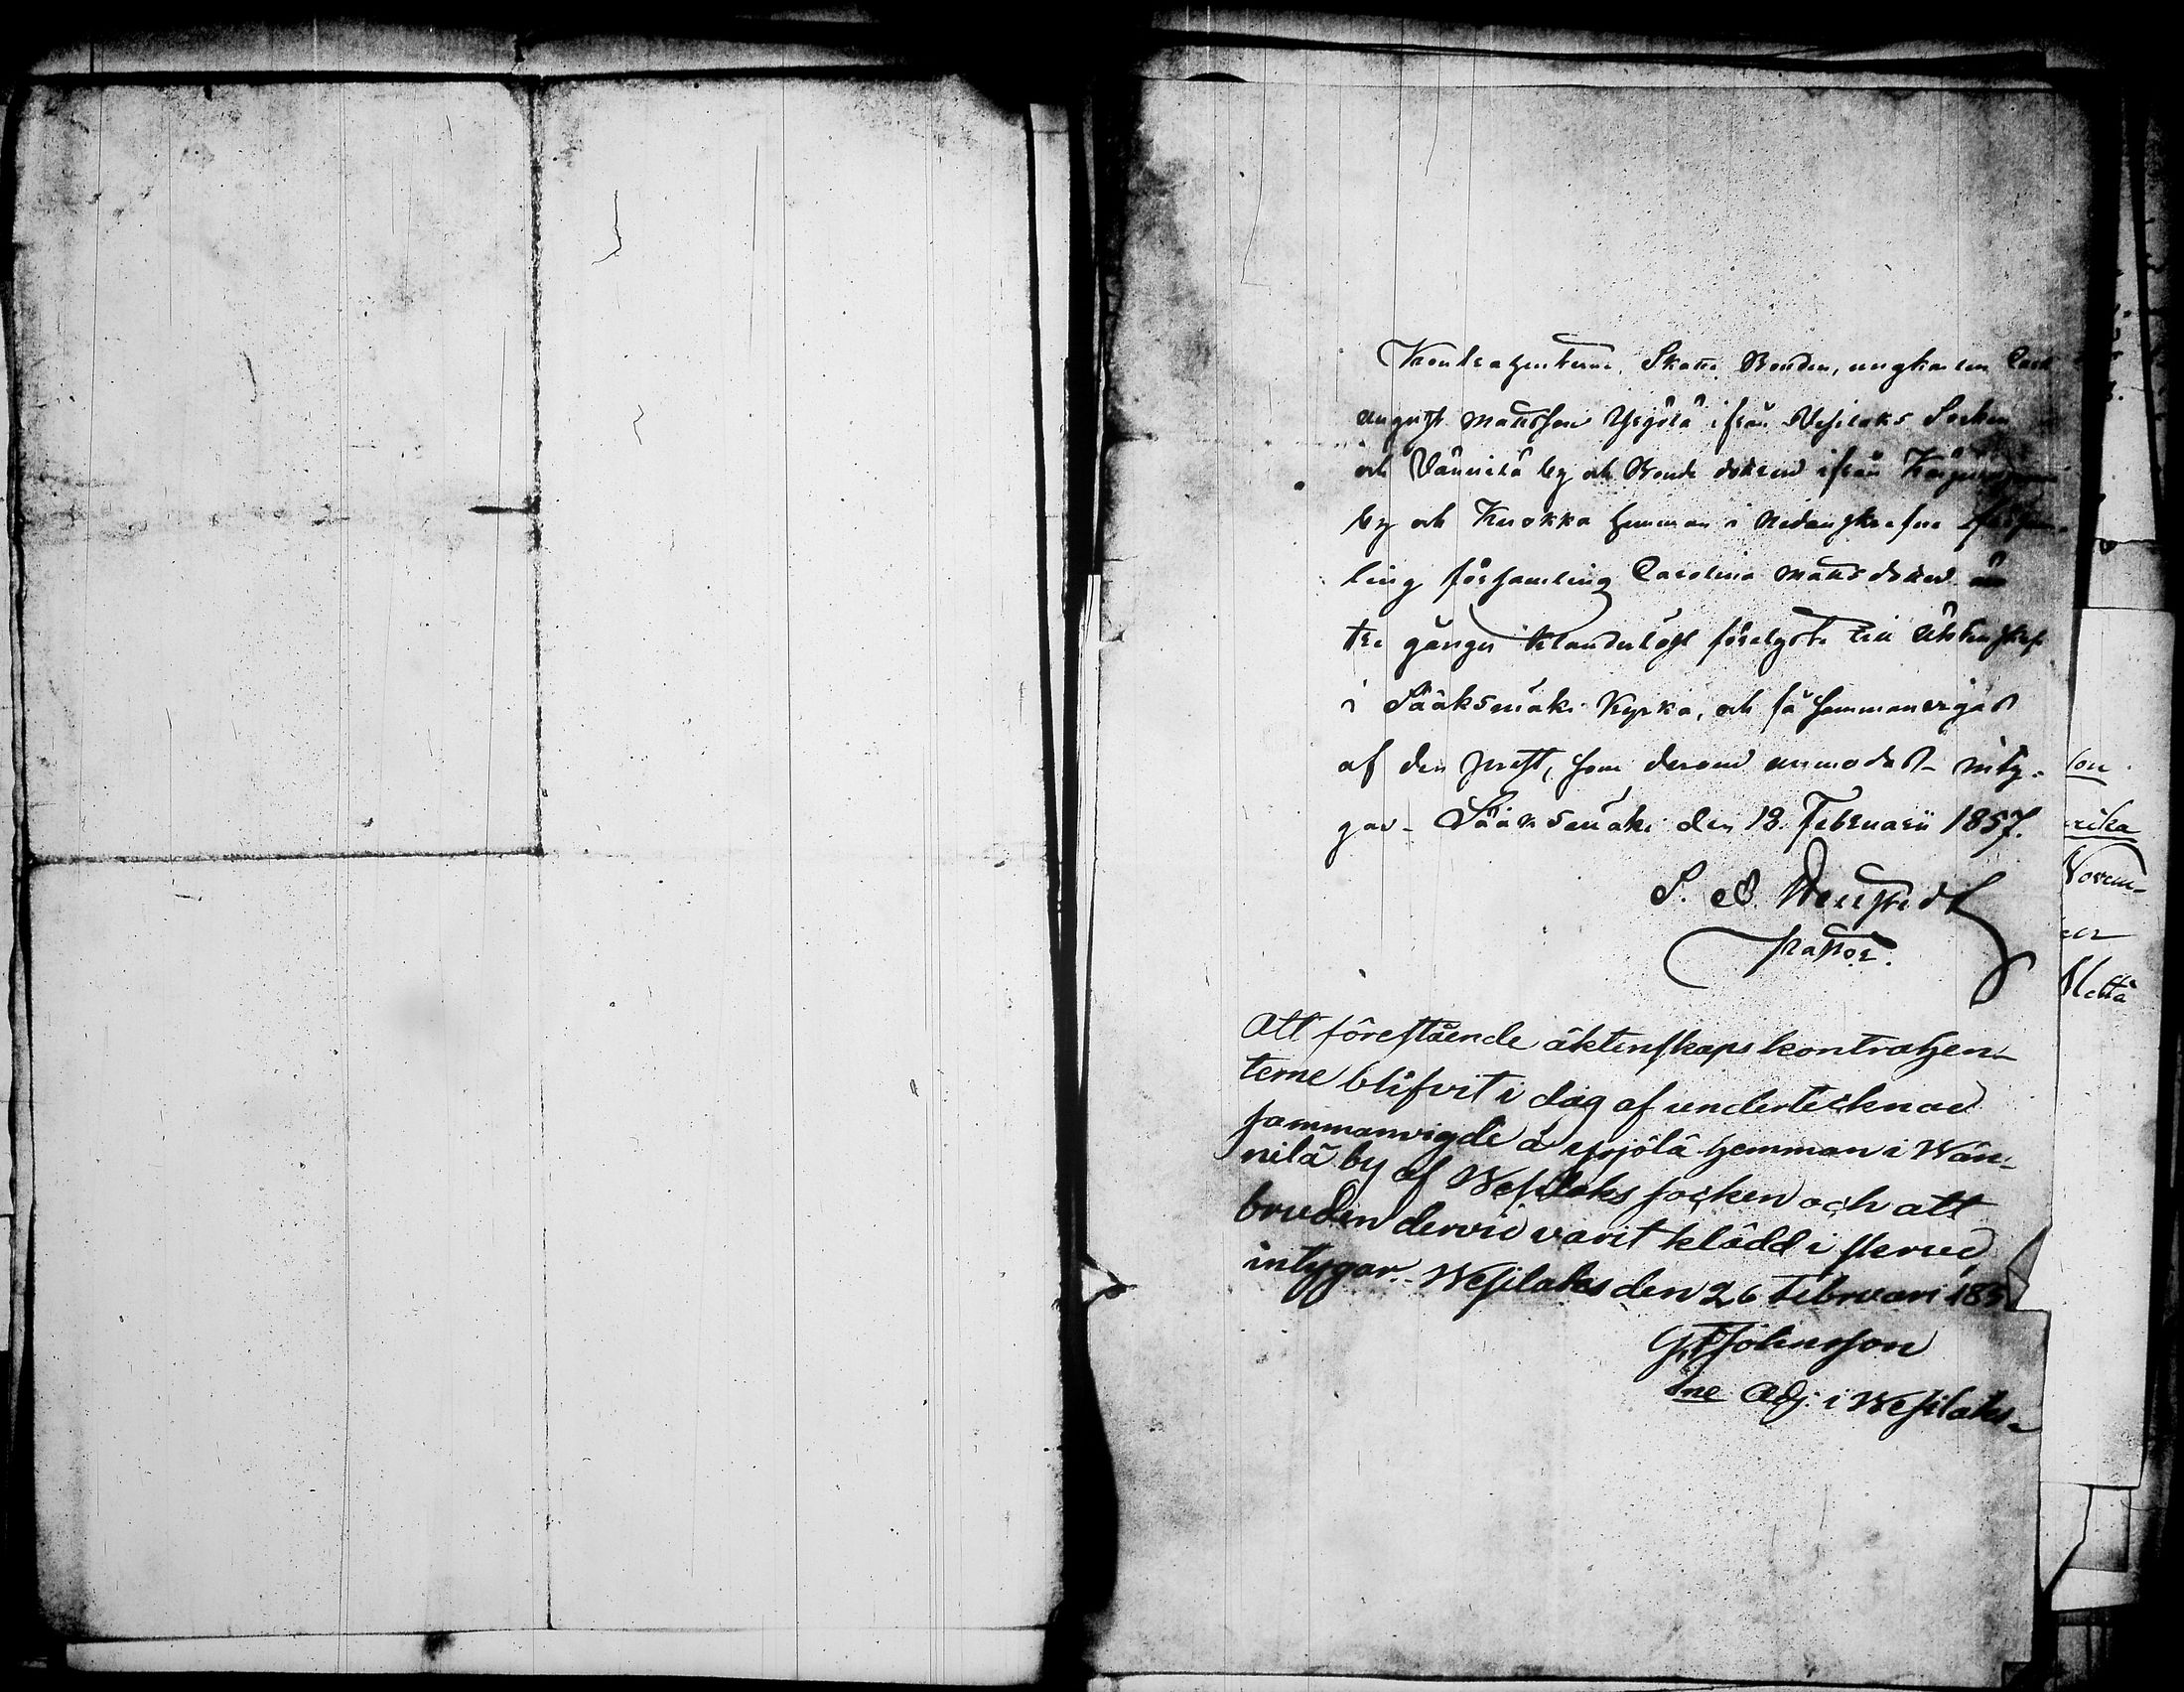 Kontrahenterne, Skatte Bonden, ungkarlen Carl
August Mattsson Yrjölä ifrån Wesilaks Socken
och Vännilä by och Bonde dottren ifrån
by och Kuokka hemman i
ling församling Carolina Mattsdotter äro
tre gånger klanderlöst förelyste till Äktenskap
i Sääksmäki Kyrka, och få sammanvigas
af den prest, som derom anmodas- inty-
gar- Sääksmäki den 13 Februarii 1857.
Pastor.
Att förestående äktenskaps kontrahen-
terne blifvit i dag af undertecknad
sammanvigde å Yrjölä hemman i Wän-
nilä by af Wesilaks socken och att
bruden dervid varit klädd i skrud,
intygar.- Wesilaks den 26 Februari 185
G. Johnsson
v.ne Adj. i Wesilaks.
son
rika
Novem-